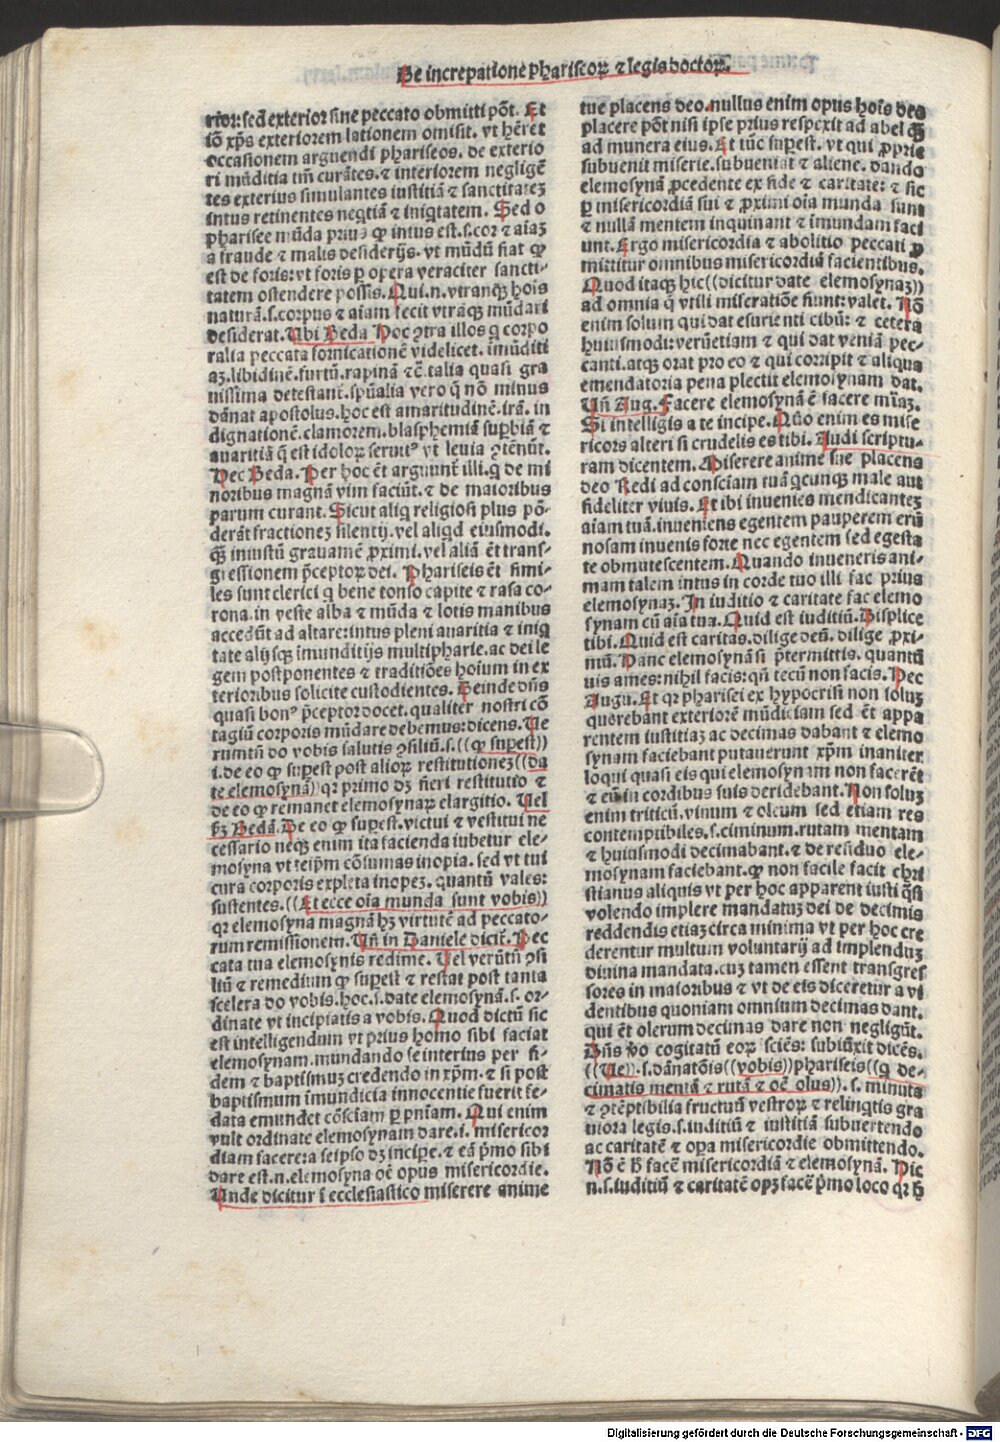 De increpatione phariseoꝝ ⁊ legis doctoꝝ.
rior: sed exterior sine peccato obmitti põt. Et
iõ xp̃s exteriorem lationem omisit. vt hẽret
occasionem arguendi phariseos. de exterio
ri mũditia tm̃ curãtes. ⁊ interiorem negligẽ
tes exterius simulantes iustitiã ⁊ sanctitatez
intus retinentes neqtiã ⁊ iniqtatem. Sed o
pharisee mũda prius ꝙ intus est. s. cor ⁊ aiãz
a fraude ⁊ malis desiderijs. vt mũdũ fiat ꝙ
est de foris: vt foris ꝑ opera veraciter sancti-
tatem ostendere possis. Qui. n. vtranqꝫ hoĩs
naturã. s. corpus ⁊ aiam fecit vtrãqꝫ mũdari
desiderat. Ubi Beda Hoc ꝯtra illos q̃ corpo
ralia peccata fornicationẽ videlicet. imũditi
aʒ. libidinẽ. furtũ. rapinã ⁊ cẽ. talia quasi gra
uissima detestant̃. spũalia vero q̃ nõ minus
dãnat apostolus. hoc est amaritudinẽ. irã. in
dignationẽ. clamorem. blasphemiã supbiã ⁊
auaritiã q̃ est idoloꝝ seruitꝰ vt̃ leuia ꝯtẽnũt.
Hec Beda. Per hoc ẽt arguunt̃ illi. q̃ de mi
noribus magnã vim faciũt. ⁊ de maioribus
parum curant. Sicut aliq̃ religiosi plus põ-
derãt fractionez silentij. vel aliqd eiusmodi.
qꝫ iniustũ grauamẽ ꝓximi. vel aliã ẽt trans-
gressionem p̃ceptoꝝ dei. Phariseis ẽt simi-
les sunt clerici q̃ bene tonso capite ⁊ rasa co-
rona. in veste alba ⁊ mũda ⁊ lotis manibus
accedũt ad altare: intus pleni auaritia ⁊ iniq
tate alijsqꝫ imunditijs multipharie. ac dei le
gem postponentes ⁊ traditiões hoium in ex
terioribus solicite custodientes. Deinde dñs
quasi bonꝰ p̃ceptor docet. qualiter nostri cõ
tagiũ corporis mũdare debemus: dicens. Ue
rumtñ do vobis salutis ꝯsiliũ. s. ((ꝙ supest))
i. de eo ꝙ supest post alioꝝ restitutionez ((da
te elemosynã)) qꝛ primo dʒ fieri restitutio ⁊
de eo ꝙ remanet elemosynaꝝ elargitio. Uel
ẜʒ Bedã. De eo ꝙ supest. victui ⁊ vestitui ne
cessario neqꝫ enim ita facienda iubetur ele-
mosyna vt teipm̃ cõsumas inopia. sed vt tui
cura corporis expleta inopez. quantũ vales:
sustentes. ((Et ecce oia munda sunt vobis))
qꝛ elemosyna magnã hʒ virtutẽ ad peccato-
rum remissionem. Uñ in Daniele dicit̃. Pec
cata tua elemosynis redime. Uel verũtñ ꝯsi
liũ ⁊ remedium ꝙ supest ⁊ restat post tanta
scelera do vobis. hoc. s. date elemosynã. s. or-
dinate vt incipiatis a vobis. Quod dictũ sic
est intelligendum vt prius homo sibi faciat
elemosynam. mundando se interius per fi-
dem ⁊ baptismuʒ credendo in xp̃m. ⁊ si post
baptismum imundicia innocentie fuerit fe-
data emundet cõsciam ꝑ pñiam. Qui enim
vult ordinate elemosynam dare. i. misericor
diam facere: a seipso dʒ incipe. ⁊ eã p̃mo sibi
dare est. n. elemosyna oẽ opus misericordie.
Unde dicitur ĩ ecclesiastico miserere anime
tue placens deo. nullus enim opus hoĩs deo
placere põt nisi ipse prius respexit ad abel qꝫ
ad munera eius. Et tũc supest. vt qui ꝓprie
subuenit miserie. subueniat ⁊ aliene. dando
elemosynã ꝓcedente ex fide ⁊ caritate: ⁊ sic
ꝑ misericordiã sui ⁊ ꝓximi oĩa munda sunt
⁊ nullã mentem inquinant ⁊ imundam faci
unt. Ergo misericordia ⁊ abolitio peccati ꝓ
mittitur omnibus misericordiã facientibus.
Quod itaqꝫ hic ((dicitur date elemosynaʒ))
ad omnia q̃ vtili miseratiõe fiunt: valet. Nõ
enim solum qui dat esurienti cibũ: ⁊ cetera
huiusmodi: verũetiam ⁊ qui dat veniã pec-
canti. atqꝫ orat pro eo ⁊ qui corripit ⁊ aliqua
emendatoria pena plectit elemosynam dat.
Uñ Aug. Facere elemosynã ẽ facere mĩaʒ.
Si intelligis a te incipe. Quõ enim es mise
ricors alteri si crudelis es tibi. Audi scriptu-
ram dicentem. Miserere anime tue placens
deo Redi ad consciam tuã qcunqꝫ male aut
fideliter viuis. Et ibi inuenies mendicantez
aiam tuã. inueniens egentem pauperem eru
nosam inuenis forte nec egentem sed egesta
te obmutescentem. Quando inueneris ani-
mam talem intus in corde tuo illi fac prius
elemosynaʒ. In iuditio ⁊ caritate fac elemo
synam cũ aĩa tua. Quid est iuditiũ. Displice
tibi. Quid est caritas. dilige deũ. dilige ꝓxi-
mũ. Hanc elemosynã si p̃termittis. quantũ
uis ames: nihil facis: qñ tecũ non facis. Hec
Augu. Et qꝛ pharisei ex hypocrisi non soluʒ
querebant exteriorẽ mũdiciam sed ẽt appa
rentem iustitiaʒ ac decimas dabant ⁊ elemo
synam faciebant putauerunt xp̃m inaniter
loqui quasi eis qui elemosynam non facerẽt
⁊ eũ in cordibus suis deridebant. Non soluʒ
enim triticũ. vinum ⁊ oleum sed etiam res
contemptibiles. s. ciminum. rutam mentam
⁊ huiusmodi decimabant. ⁊ de residuo ele-
mosynam faciebant. ꝙ non facile facit chri
stianus aliquis vt per hoc apparent iusti q̃si
volendo implere mandatuʒ dei de decimis
reddendis etiaʒ circa minima vt per hoc cre
derentur multum voluntarij ad implenduʒ
diuina mandata. cuʒ tamen essent transgres
sores in maioribus ⁊ vt de eis diceretur a vi
dentibus quoniam omnium decimas dant.
qui ẽt olerum decimas dare non negligũt.
Dñs ṽo cogitatũ eoꝝ sciẽs: subiũxit dicẽs.
((Ue)). s. dãnatõis ((vobis)) phariseis ((q̃ de-
cimatis mentã ⁊ rutã ⁊ oẽ olus)). s. minuta
⁊ ꝯtẽptibilia fructuũ vestroꝝ ⁊ relinqtis gra
uiora legis. s. iuditiũ ⁊ iustitiã subuertendo
ac caritatẽ ⁊ opa misericordie obmittendo.
Nõ ẽ ḣ facẽ misericordiã ⁊ elemosynã. Hic
n. s. iuditiũ ⁊ caritatẽ opʒ facẽ p̃mo loco qꝛ ḣ
Digitalisierung gefördert durch die Deutsche Forschungsgemeinschaft - DFG